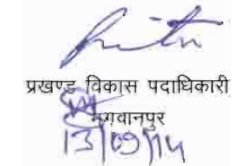 प्रखण्ड विकास पदाधिकारी
भगवानपुर
13/09/14